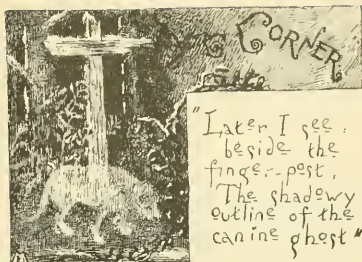 CORNER
"Later I see
beside the
finger-post,
The shadowy
outline of the
canine ghost"